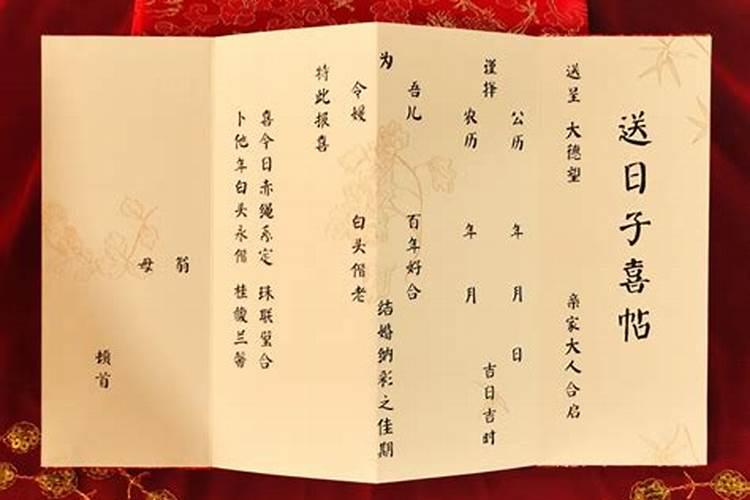 送日子喜帖
送呈 大德望 亲家大人合启
公历 年 月 日
谨择 吉日吉时
农历 年 月
吾儿 百年好合
为 结婚纳彩之佳期
令媛 白头偕老
特此报喜
喜今日赤绳系定 珠联璧合
卜他年白头永偕 桂馥兰馨
翁
母
顿首